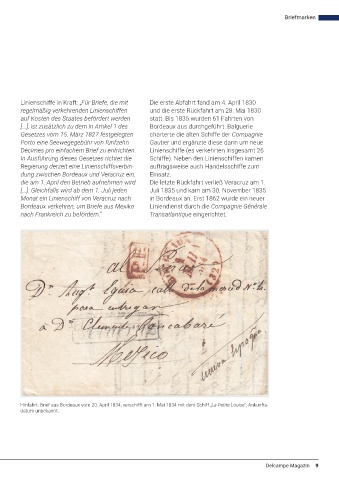 Briefmarken
Linienschiffe in Kraft: „Für Briefe, die mit
regelmäßig verkehrenden Linienschiffen
auf Kosten des Staates befördert werden
[...], ist zusätzlich zu dem in Artikel 1 des
Gesetzes vom 15. März 1827 festgelegten
Porto eine Seewegegebühr von fünfzehn
Décimes pro einfachem Brief zu entrichten.
In Ausführung dieses Gesetzes richtet die
Regierung derzeit eine Linienschiffsverbin-
dung zwischen Bordeaux und Veracruz ein,
die am 1. April den Betrieb aufnehmen wird
[...]. Gleichfalls wird ab dem 1. Juli jeden
Monat ein Linienschiff von Veracruz nach
Bordeaux verkehren, um Briefe aus Mexiko
nach Frankreich zu befördern.“
Die erste Abfahrt fand am 4. April 1830
und die erste Rückfahrt am 28. Mai 1830
statt. Bis 1835 wurden 61 Fahrten von
Bordeaux aus durchgeführt. Balguerie
charterte die alten Schiffe der Compagnie
Gautier und ergänzte diese dann um neue
Schiffe (es verkehrten insgesamt 26
Schiffe). Neben den Linienschiffen kamen
auftragsweise auch Handelsschiffe zum
Einsatz.
Die letzte Rückfahrt verließ Veracruz am 1.
Juli 1835 und kam am 30. November 1835
in Bordeaux an. Erst 1862 wurde ein neuer
Liniendienst durch die Compagnie Générale
Transatlantique eingerichtet.
P.P.
Dn Augt Eguia calle de la
para entregar
a Dn Clemente
Mejico
Hinfahrt: Brief aus Bordeaux vom 20. April 1834, verschifft am 1. Mai 1834 mit dem Schiff „La Petite Louise“, Ankunfts-
datum unbekannt.
Delcampe Magazin 9